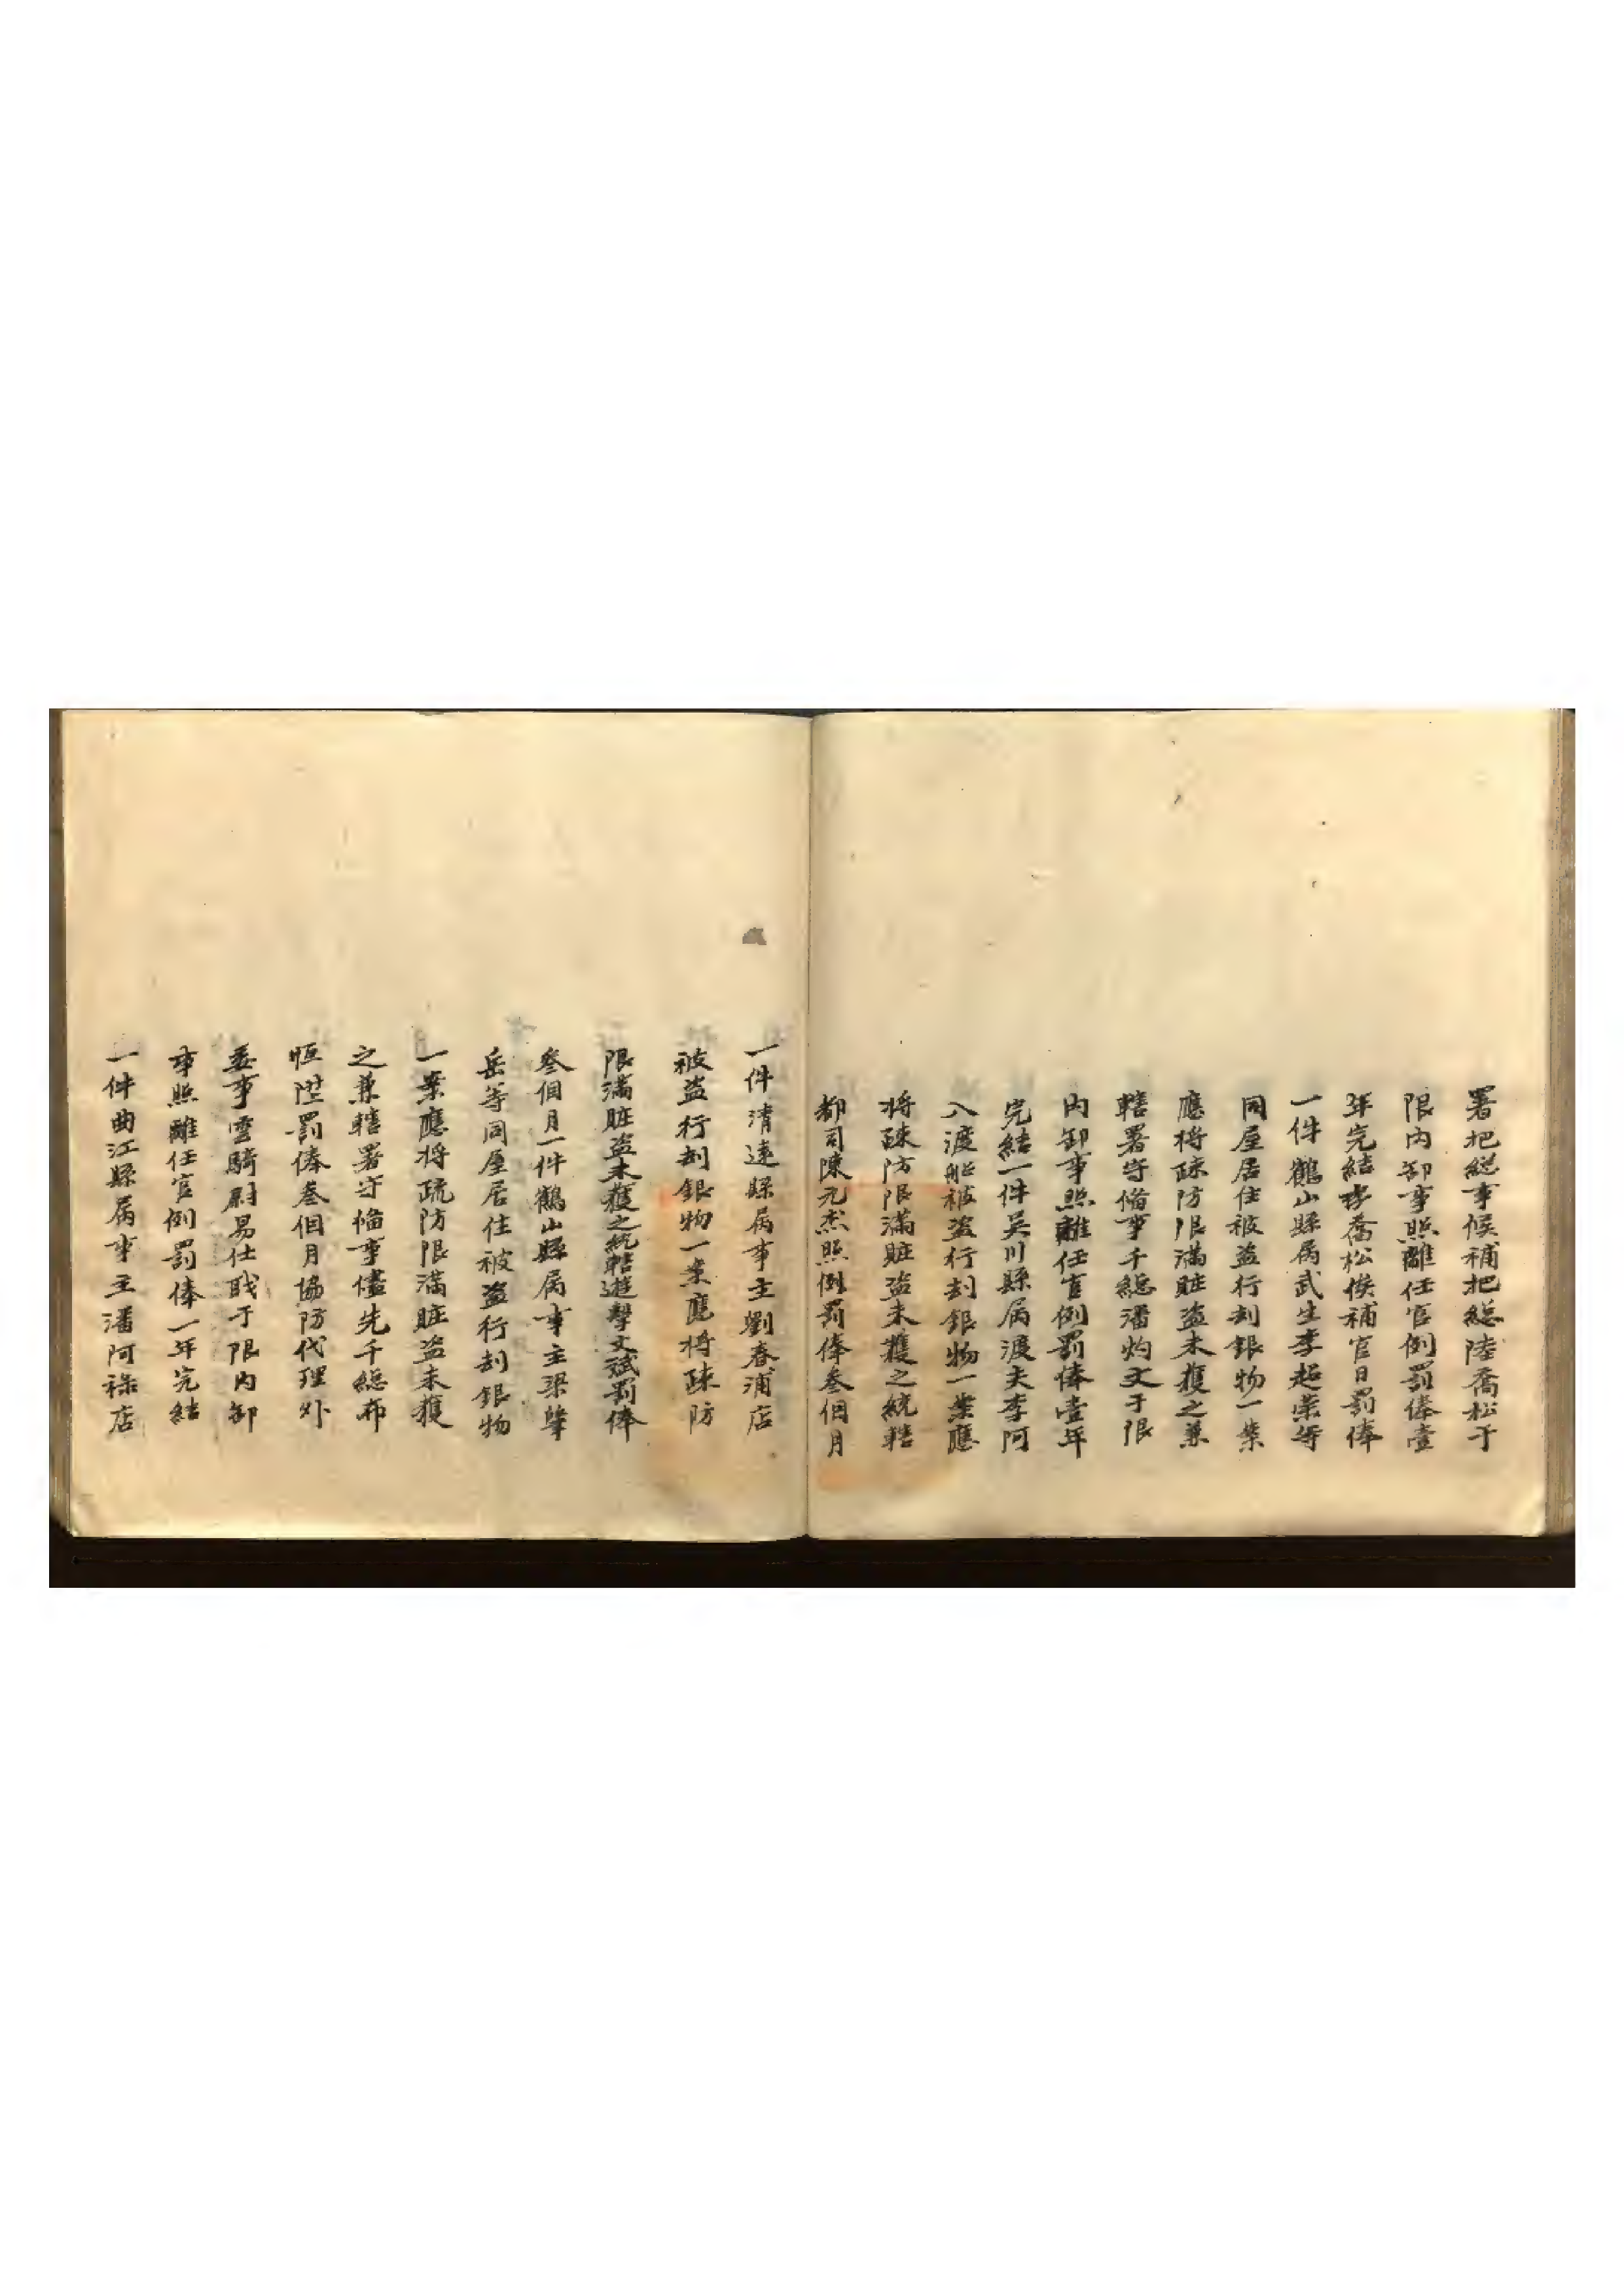 署把総事候補把総陸喬松于
限内卸事照離任官例罰俸壹
年完結喬松候補官日罰俸
一件鶴山縣属武生李起棠等
同屋居住被盗行刦銀物一案
應将疎防限滿賍盗未獲之兼
轄署守俻事千総潘灼文于限
内卸事照離任官例罰俸壹年
完結一件吳川縣属渡夫李阿
入渡船被盗行刦銀物一案應
将疎防限滿賍盗未獲之統轄
都司陳元杰照例罰俸叁個月
一件清遠縣属事主劉春浦店
被盗行刦銀物一案應将疎防
限滿賍盗未獲之統轄遊擊文斌罰俸
叁個月一件鶴山縣属事主梁肇
岳等同屋居住被盗行刦銀物
一案應将疏防限滿賍盗未獲
之兼轄署守俻事儘先千総布
恒陞罰俸叁個月協防代理外
委事雲騎尉易仕戝于限内卸
事照離任官例罰俸一年完結
一件曲江縣属事主潘阿祿店